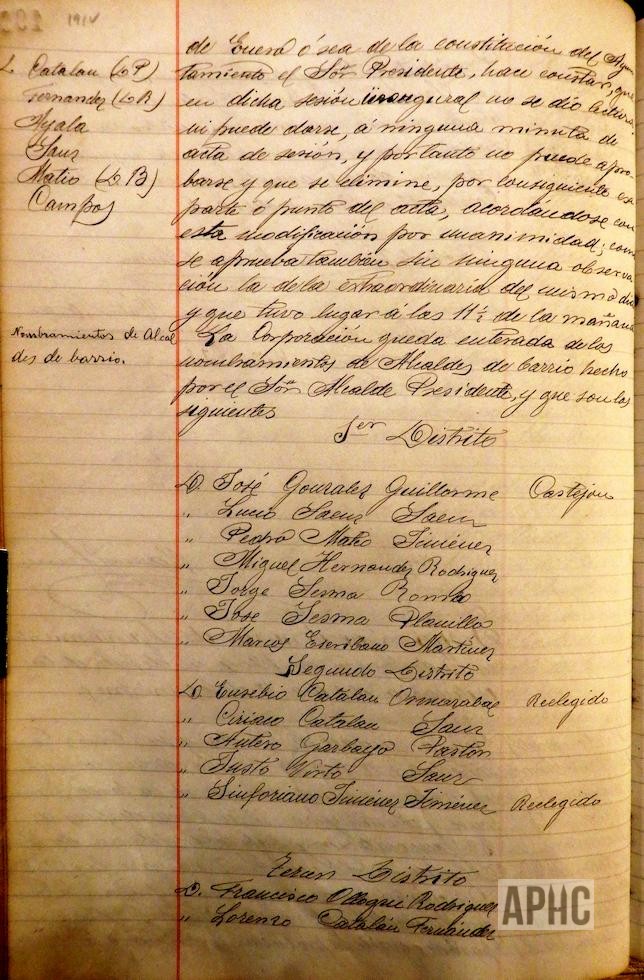 1914
L. Catalan (D P)
Fernandez (D R)
Ayala
Sanz
Mateo (D B)
Campos
de Enero ó sea de la constitución del Ayun
tamiento el Sor Presidente, hace constar, que
en dicha sesión inaugural no se dió lectura
ni puede darse, á ninguna minuta de
acta de sesión, y por tanto no puede apro-
barse y que se elimine, por consiguiente esa
parte ó punto del acta, acordándose con
esta modificación por unanimidad; como
se aprueba tambien sin ninguna observa
ción la de la extraordinaria del mismo dia
y que tuvo lugar á las 11½ de la mañana
Nombramientos de Alcal
des de barrio.
La Corporación queda enterada de los
nombramientos de Alcaldes de barrio hecho
por el Sor Alcalde Presidente, y que son los
siguientes
1er Distrito
D. José Gonzalez Guillorme Castejon
" Lucio Saenz Saenz
" Pedro Mateo Jiménez
" Miguel Hernandez Rodriguez
" Jorge Sesma Romo
" José Sesma Planillo
" Marcos Escribano Martinez
Segundo Distrito
D. Eusebio Catalan Reelegido
" Ciriaco Catalan Sanz
" Antero Garbayo Pastor
" Justo Virto Sanz
" Sinforiano Jiménez Jiménez Reelegido
Tercer Distrito
D. Francisco Olloqui Rodriguez
" Lorenzo Catalán Fernández
APHC